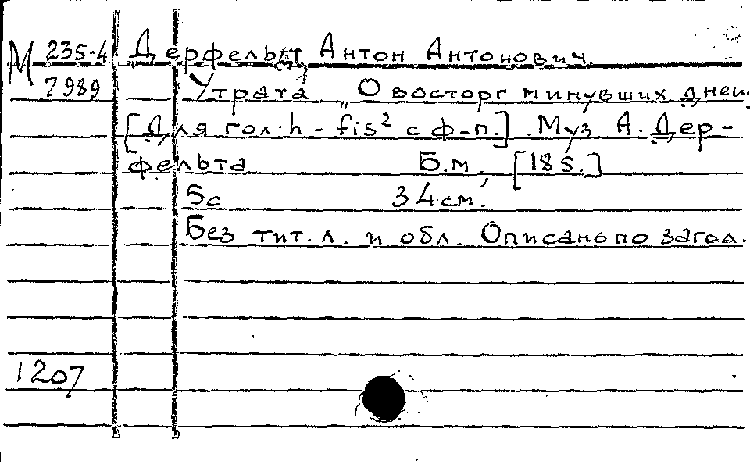 М 235-4 Дерфельдт Антон Антонович
7989 Утрата „О восторг минувших дней.
[Для гол. h - fis² с ф-п.]. Муз. А. Дер-
фельта Б.м., [185.]
5с 34 см.
Без тит. л. и обл. Описано по загол.
1207